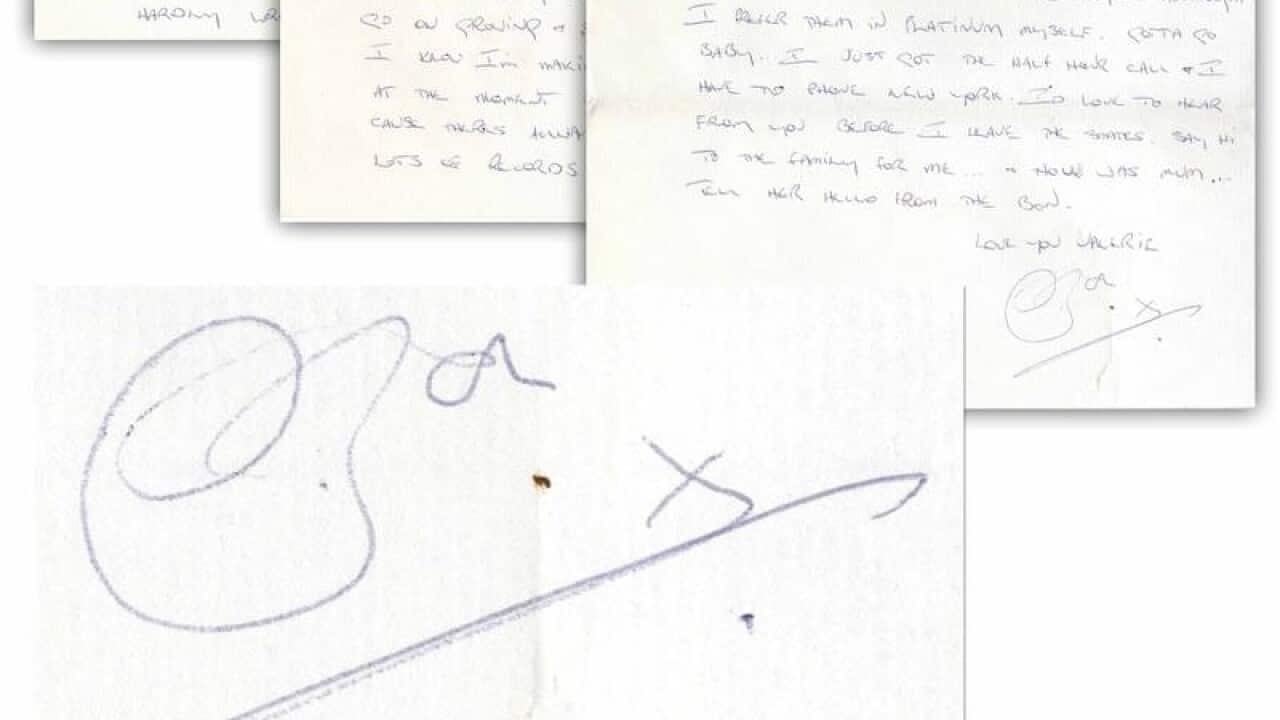 HARDLY
GO ON GROWING &
I KNOW I'm MAKI
AT THE MOMENT
CAUSE THERES ALLWA
LOTS OF RECORDS
I PREFER THEM IN PLATINUM MYSELF. GOTTA GO
BABY.. I JUST GOT THE HALF HOUR CALL & I
HAVE TO PHONE NEW YORK. I'D LOVE TO HEAR
FROM YOU BEFORE I LEAVE THE STATES. SAY HI
TO THE FAMILY FOR ME ... & HOWS WAS MUM...
TELL HER HELLO FROM THE BON.
LOVE YOU VALERIE
Bon
X
Bon
X